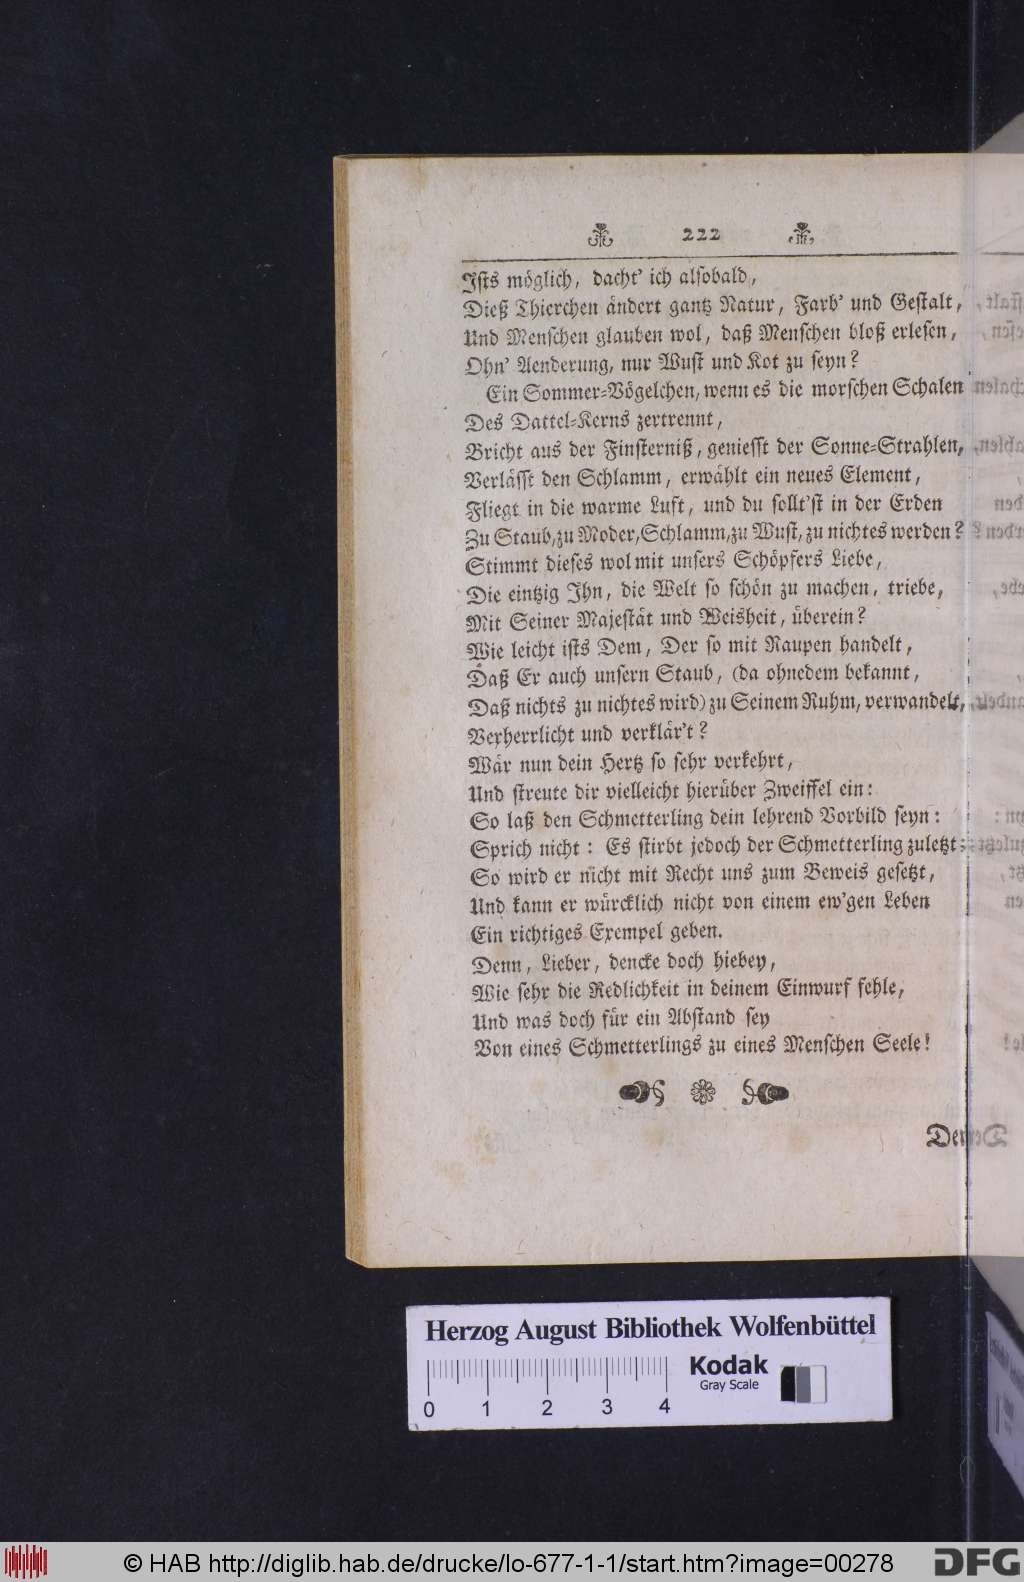 222
Ists möglich, dacht' ich alsobald,
Dieß Thierchen ändert gantz Natur, Farb' und Gestalt,
Und Menschen glauben wol, daß Menschen bloß erlesen,
Ohn' Aenderung, nur Wust und Kot zu seyn?
Ein Sommer-Vögelchen, wenn es die morschen Schalen
Des Dattel-Kerns zertrennt,
Bricht aus der Finsterniß, geniesst der Sonne-Strahlen,
Verlässt den Schlamm, erwählt ein neues Element,
Fliegt in die warme Luft, und du sollt'st in der Erden
Zu Staub, zu Moder, Schlamm, zu Wust, zu nichtes werden?
Stimmt dieses wol mit unsers Schöpfers Liebe,
Die eintzig Ihn, die Welt so schön zu machen, triebe,
Mit Seiner Majestät und Weisheit, überein?
Wie leicht ists Dem, Der so mit Raupen handelt,
Daß Er auch unsern Staub, (da ohnedem bekannt,
Daß nichts zu nichtes wird) zu Seinem Ruhm, verwandelt,
Verherrlicht und verklär't?
Wär nun dein Hertz so sehr verkehrt,
Und streute dir vielleicht hierüber Zweiffel ein:
So laß den Schmetterling dein lehrend Vorbild seyn:
Sprich nicht: Es stirbt jedoch der Schmetterling zuletzt:
So wird er nicht mit Recht uns zum Beweis gesetzt,
Und kann er würcklich nicht von einem ew'gen Leben
Ein richtiges Exempel geben.
Denn, Lieber, dencke doch hiebey,
Wie sehr die Redlichkeit in deinem Einwurf fehle,
Und was doch für ein Abstand sey
Von eines Schmetterlings zu eines Menschen Seele!
Herzog August Bibliothek Wolfenbüttel
Kodak
Gray Scale
0 1 2 3 4
© HAB http://diglib.hab.de/drucke/lo-677-1-1/start.htm?image=00278
DFG